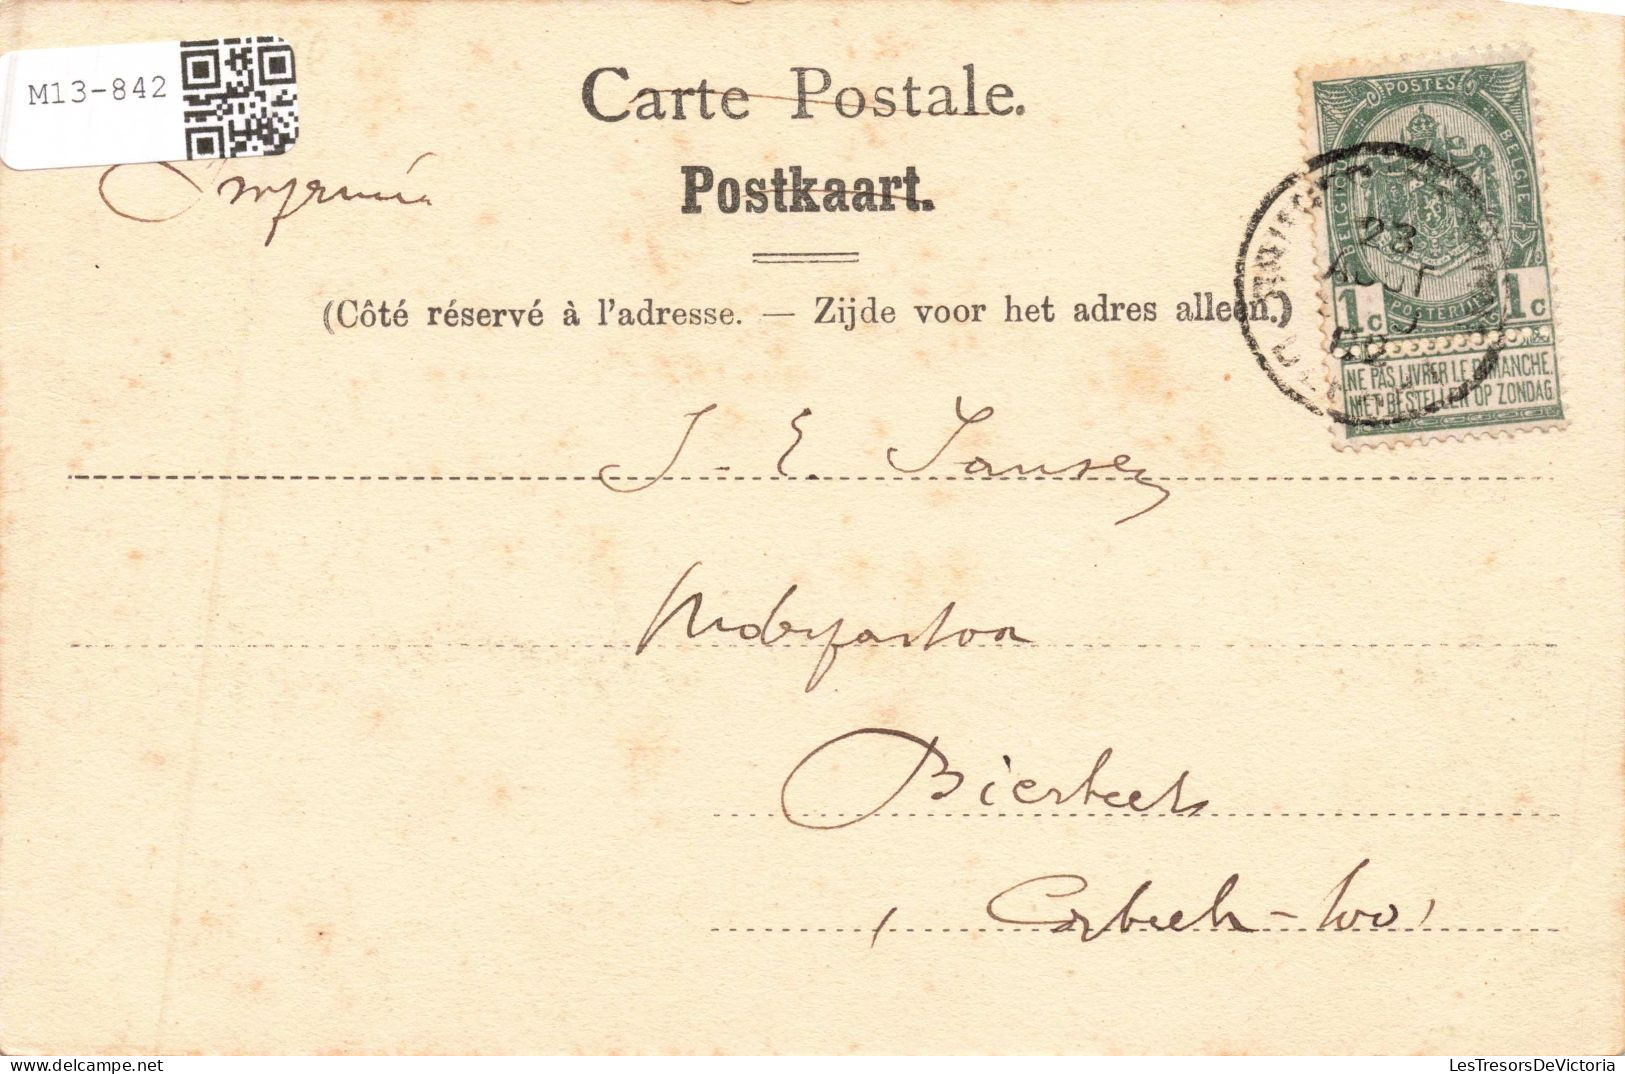 M13-842
Carte Postale.
Imprimé
Postkaart.
(Côté réservé à l'adresse. — Zijde voor het adres alleen.)
POSTES
BELGIQUE
BELGIE
POSTERIJEN
23
AOUT
1c 1c
NE PAS LIVRER LE DIMANCHE.
NIET BESTELLEN OP ZONDAG
J. E. Jansen
Bierbeek
(Corbeek-Loo)
LesTresorsDeVictoria